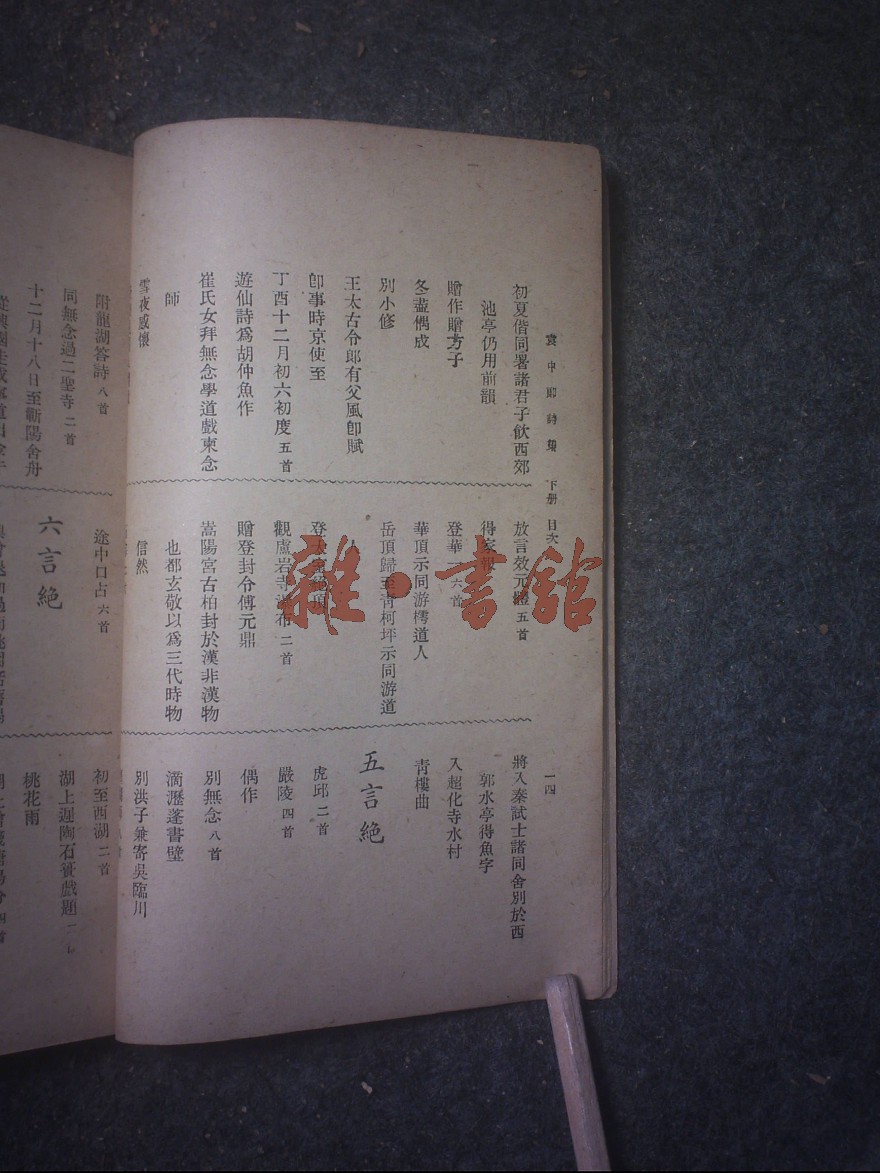 袁中郎詩集 下册 目次
一四
初夏偕同署諸君子飮西郊
池亭仍用前韻
贈作贈方子
冬盡偶成
別小修
王太古令郎有父風卽賦
卽事時京使至
丁酉十二月初六初度 五首
遊仙詩爲胡仲魚作
崔氏女拜無念學道戲柬念
師
雪夜感懷
放言效元體 五首
得家報
登華 六首
華頂示同游樗道人
岳頂歸至靑柯坪示同游道
人
登太室絕頂
觀盧岩寺瀑布 二首
贈登封令傅元鼎
嵩陽宮古柏封於漢非漢物
也都玄敬以爲三代時物
信然
將入秦試士諸同舍別於西
郭水亭得魚字
入超化寺水村
靑樓曲
五言絕
虎邱 二首
嚴陵 四首
偶作
別無念 八首
滴瀝蓬書壁
別洪子兼寄吳臨川
附龍湖答詩 八首
同無念過二聖寺 二首
十二月十八日至蘄陽舍舟
途中口占 六首
六言絕
初至西湖 二首
湖上遲陶石簣戲題
桃花雨
雜·書館